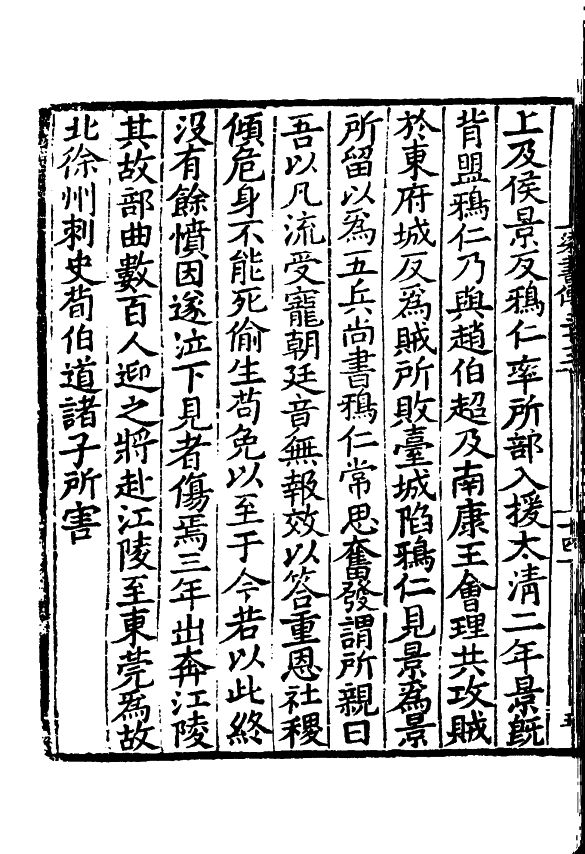 上及侯景反鴉仁率所部入援太清二年景旣
背盟鴉仁乃與趙伯超及南康王會理共攻賊
於東府城反爲賊所敗臺城陷鴉仁見景爲景
所留以爲五兵尚書鴉仁常思奮發謂所親曰
吾以凡流受寵朝廷音無報效以答重恩社稷
傾危身不能死偷生苟免以至于今若以此終
沒有餘憤因遂泣下見者傷焉三年出奔江陵
其故部曲數百人迎之將赴江陵至東莞爲故
北徐州刺史荀伯道諸子所害